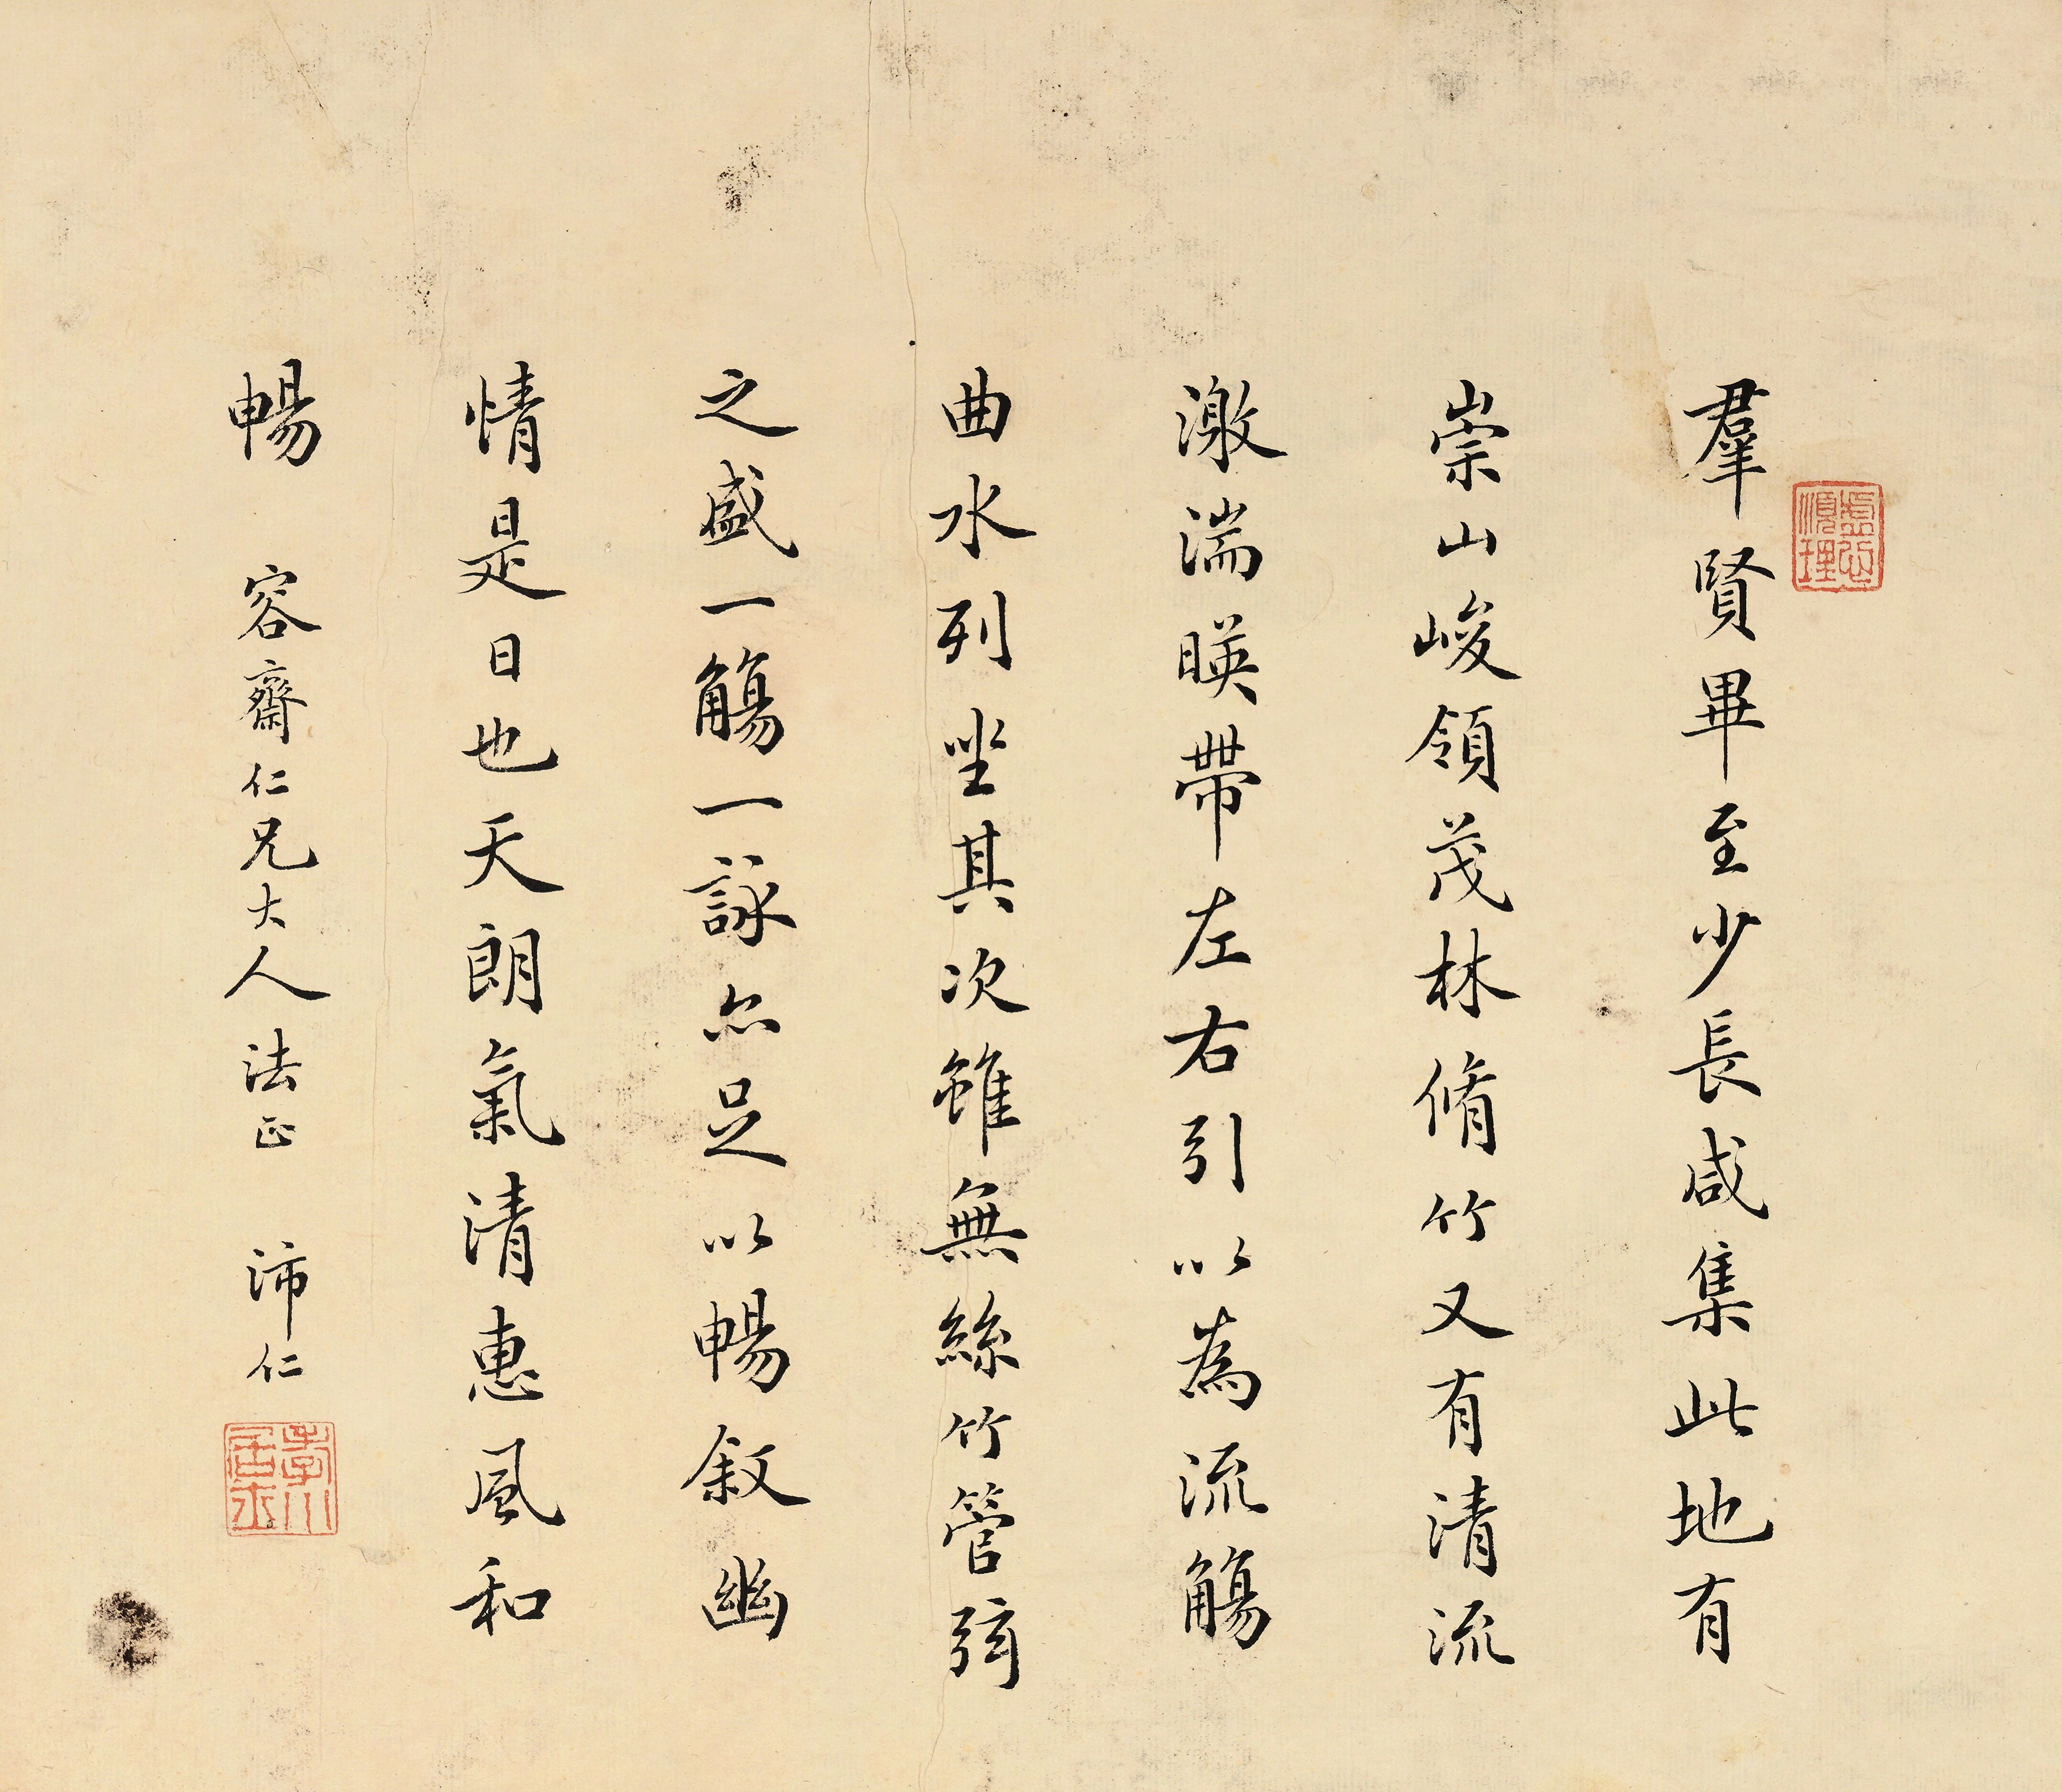 羣賢畢至少長咸集此地有
崇山峻領茂林脩竹又有清流
激湍暎帶左右引以為流觴
曲水列坐其次雖無絲竹管弦
之盛一觴一詠亦足以暢敘幽
情是日也天朗氣清惠風和
暢 容齋仁兄大人法正 沛仁
虛心順理